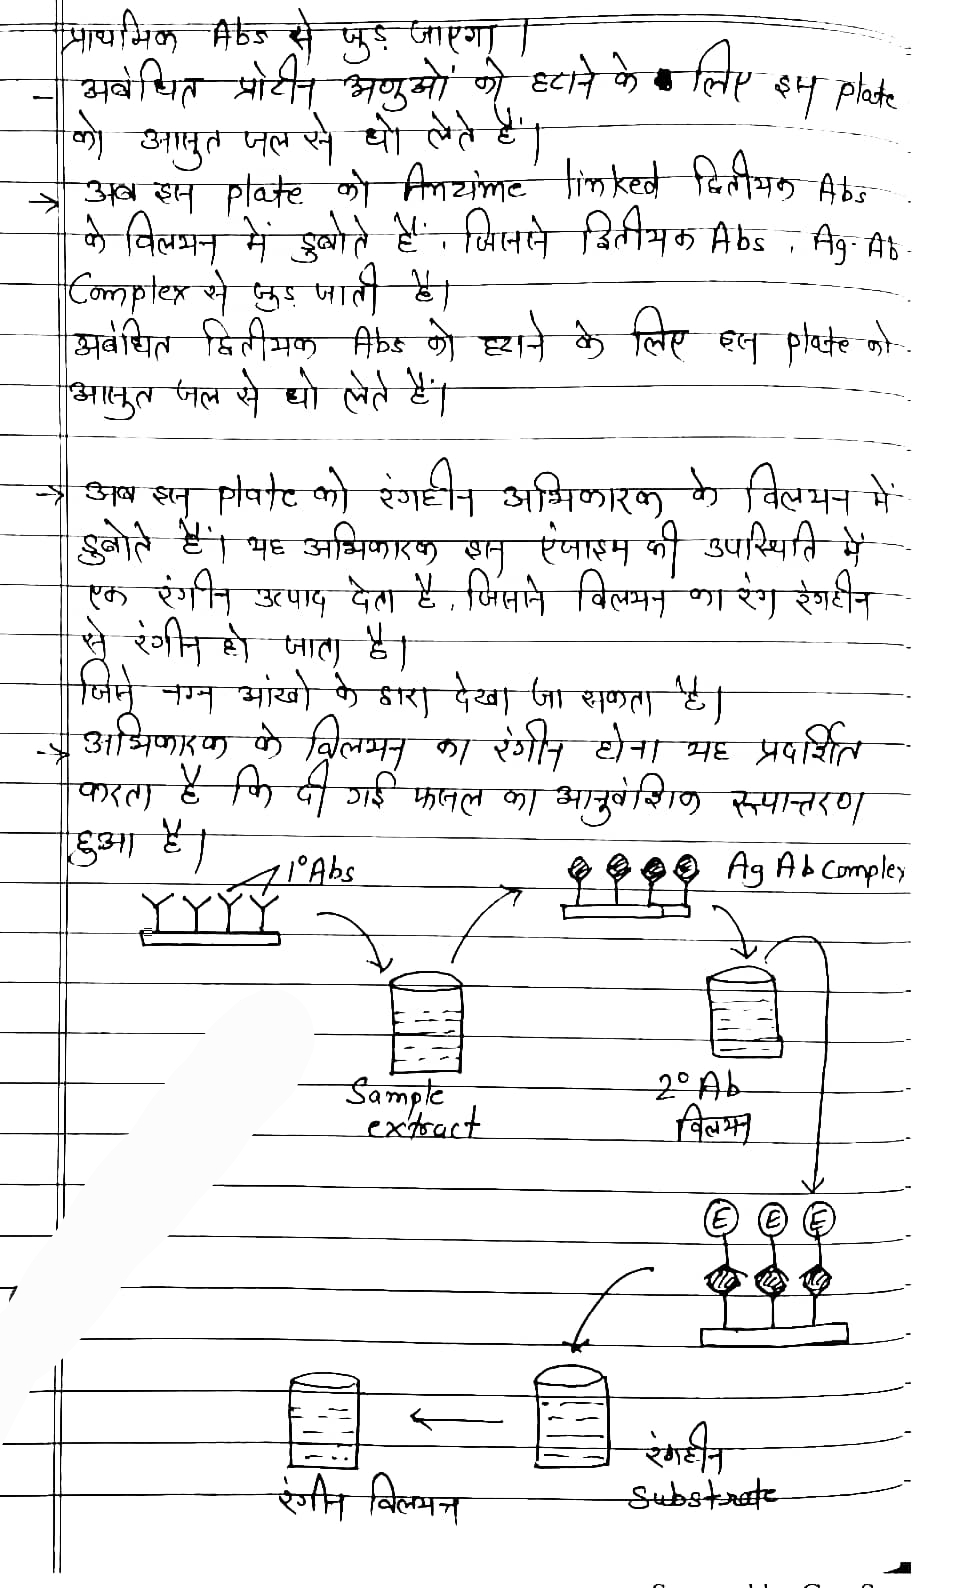 प्राथमिक Abs से जुड़ जाएगा।
- अबंधित प्रोटीन अणुओं को हटाने के लिए इस plate
को आसुत जल से धो लेते हैं।
→ अब इस plate को Anzime linked द्वितीयक Abs
के विलयन में डुबोते हैं, जिससे द्वितीयक Abs, Ag-Ab
Complex से जुड़ जाती है।
अबंधित द्वितीयक Abs को हटाने के लिए इस plate को
आसुत जल से धो लेते हैं।
→ अब इस plate को रंगहीन अभिकारक के विलयन में
डुबोते हैं। यह अभिकारक इस एंजाइम की उपस्थिति में
एक रंगीन उत्पाद देता है, जिससे विलयन का रंग रंगहीन
से रंगीन हो जाता है।
जिसे नग्न आंखो के द्वारा देखा जा सकता है।
→ अभिकारक के विलयन का रंगीन होना यह प्रदर्शित
करता है कि दी गई फसल का आनुवंशिक रूपान्तरण
हुआ है।
1° Abs
Ag Ab Complex
Sample
extract
2° Ab
विलयन
E E E
रंगहीन
Substrate
रंगीन विलयन